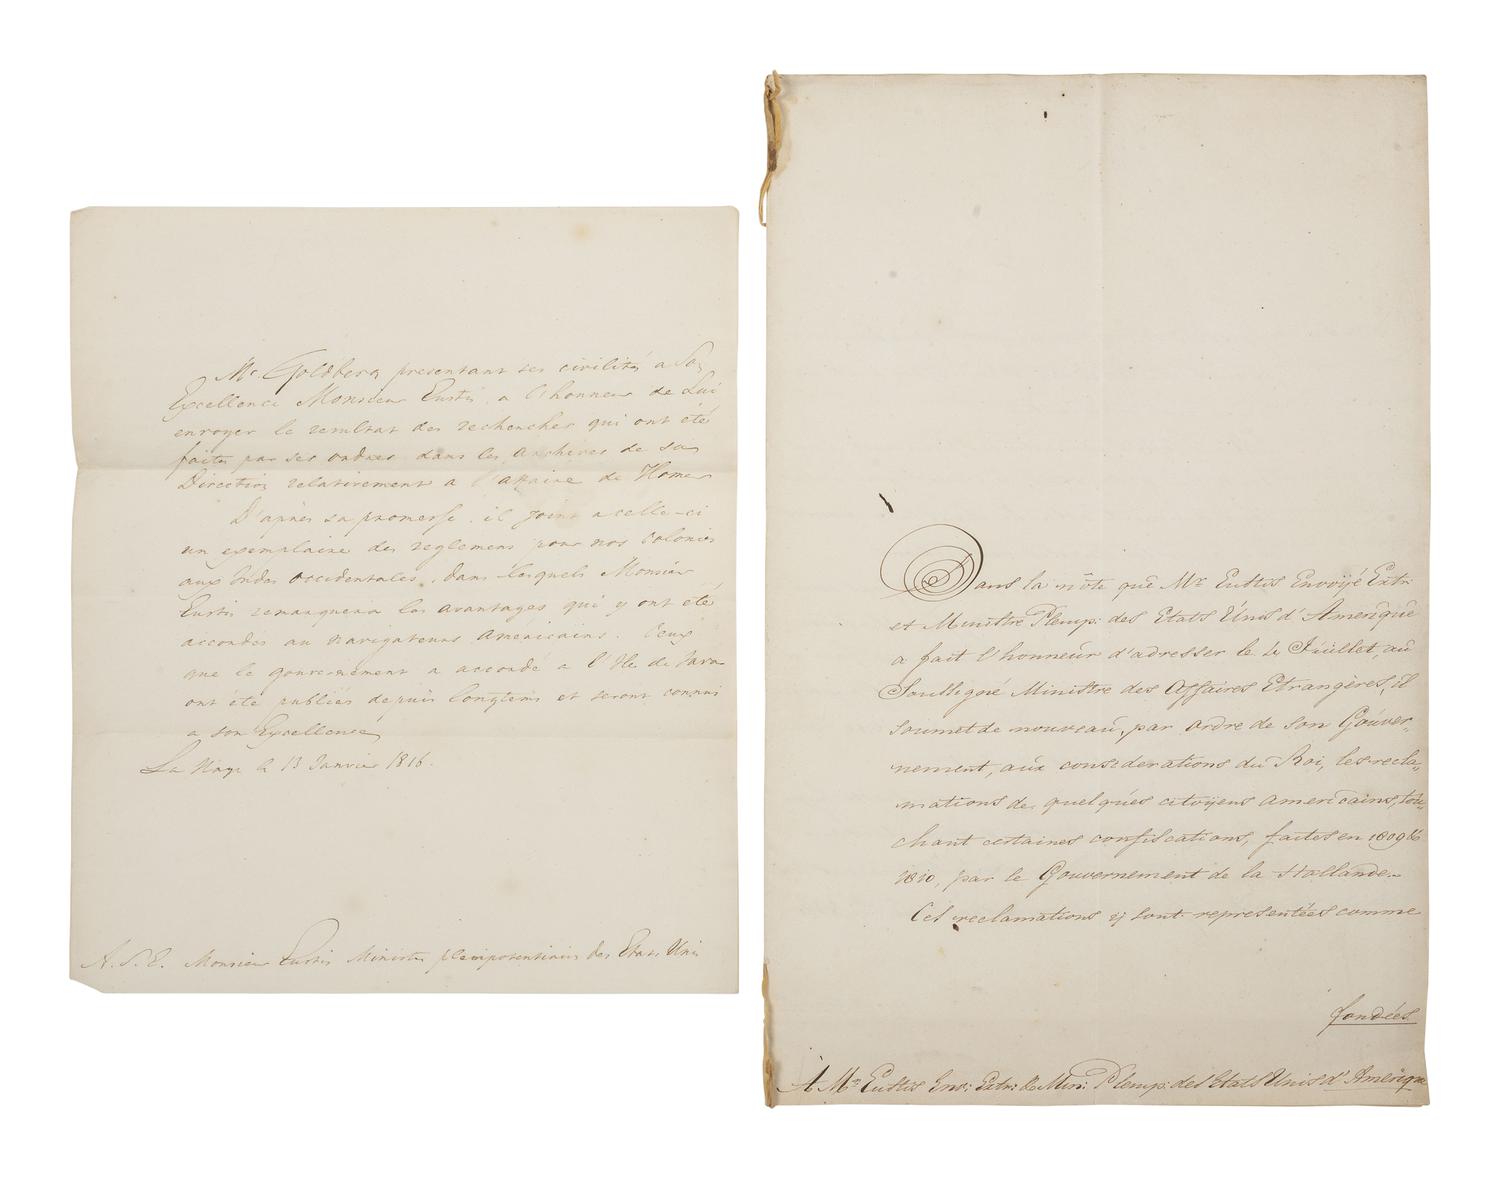 Mr. Goldberg presentant ses civilités a Son
Excellence Monsieur Eustis, a l'honneur de Lui
envoyer le resultat des recherches qui ont été
faites par ses ordres dans les Archives de sa
Direction relativement a l'affaire de Homer
D'après sa promesse, il joint a celle-ci
un exemplaire des reglemens pour nos Colonies
aux Indes occidentales, dans lesquels Monsieur
Eustis remarquera les avantages qui y ont été
accordés au navigateurs Américains. Ceux
que le gouvernement a accordé a l'Ile de Java
ont été publiés depuis longtems et seront connus
a son Excellence
La Haye le 13 Janvier 1816.
A. S. E. Monsieur Eustis Ministre plenipotentiaire des Etats Unis
Dans la nôte que Mr. Eustis Envoÿé Extr:
et Ministre Plenip: des Etats Unis d'Amerique
a fait l'honneur d'adresser le 4 Juillet, au
Soussigné Ministre des Affaires Etrangères, il
soumet de nouveau, par ordre de son Gouver-
nement, aux considerations du Roi, les recla-
mations de quelques citoÿens americains, tou-
chant certaines confiscations, faites en 1809 &
1810, par le Gouvernement de la Hollande.
Ces reclamations ÿ sont representées comme
fondées
À Mr. Eustis Env: Extr: & Min: Plenip: des Etats Unis d'Amérique